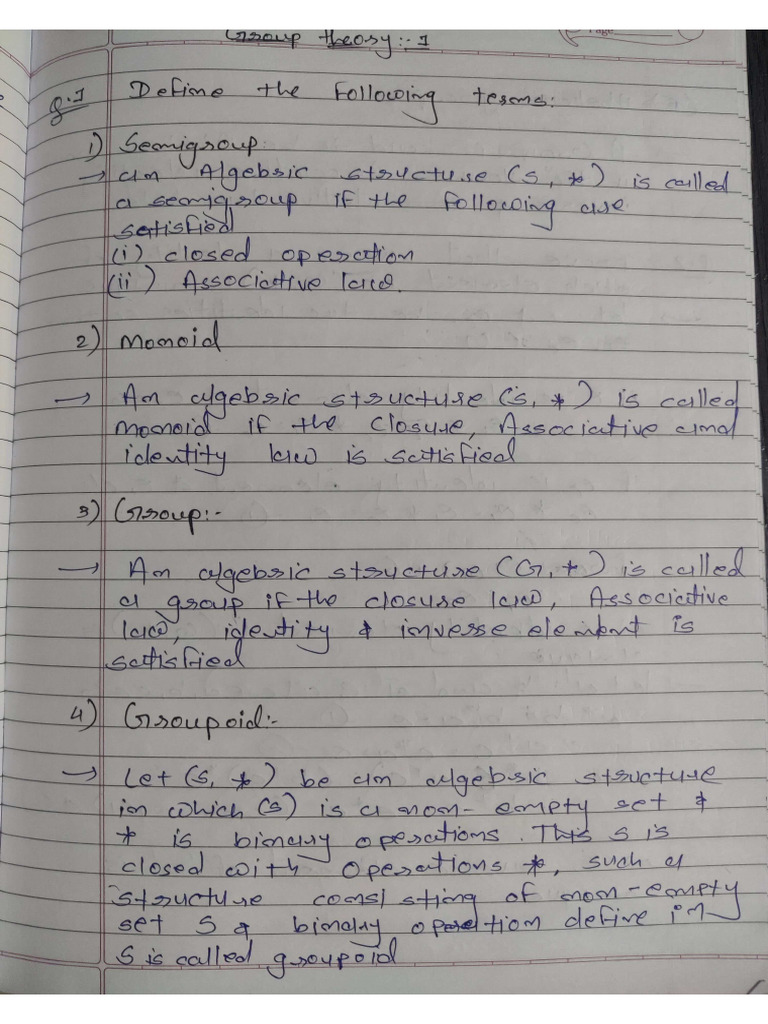 Group theory:- 1
Page
Q.1 Define the following terms:
1) Semigroup:
→ an Algebric structure (S, *) is called
a semigroup if the following are
satisfied
(i) closed operation
(ii) Associative law.
2) monoid
→ An algebric structure (s, *) is called
monoid if the closure, Associative and
identity law is satisfied
3) Group:-
→ An algebric structure (G, *) is called
a group if the closure law, Associative
law, identity & inverse element is
satisfied
4) Groupoid:-
→ Let (s, *) be an algebric structure
in which (s) is a non-empty set &
* is binary operations. This s is
closed with operations *, such a
structure consisting of non-empty
set S & binary operation define in
S is called groupoid